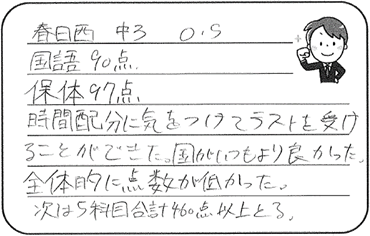 春日西 中3 O.S
国語 90点
保体97点
時間配分に気をつけてラストを受け
ることができた。国がいつもより良かった。
全体的に点数が低かった。
次は5科目合計460点以上とる。